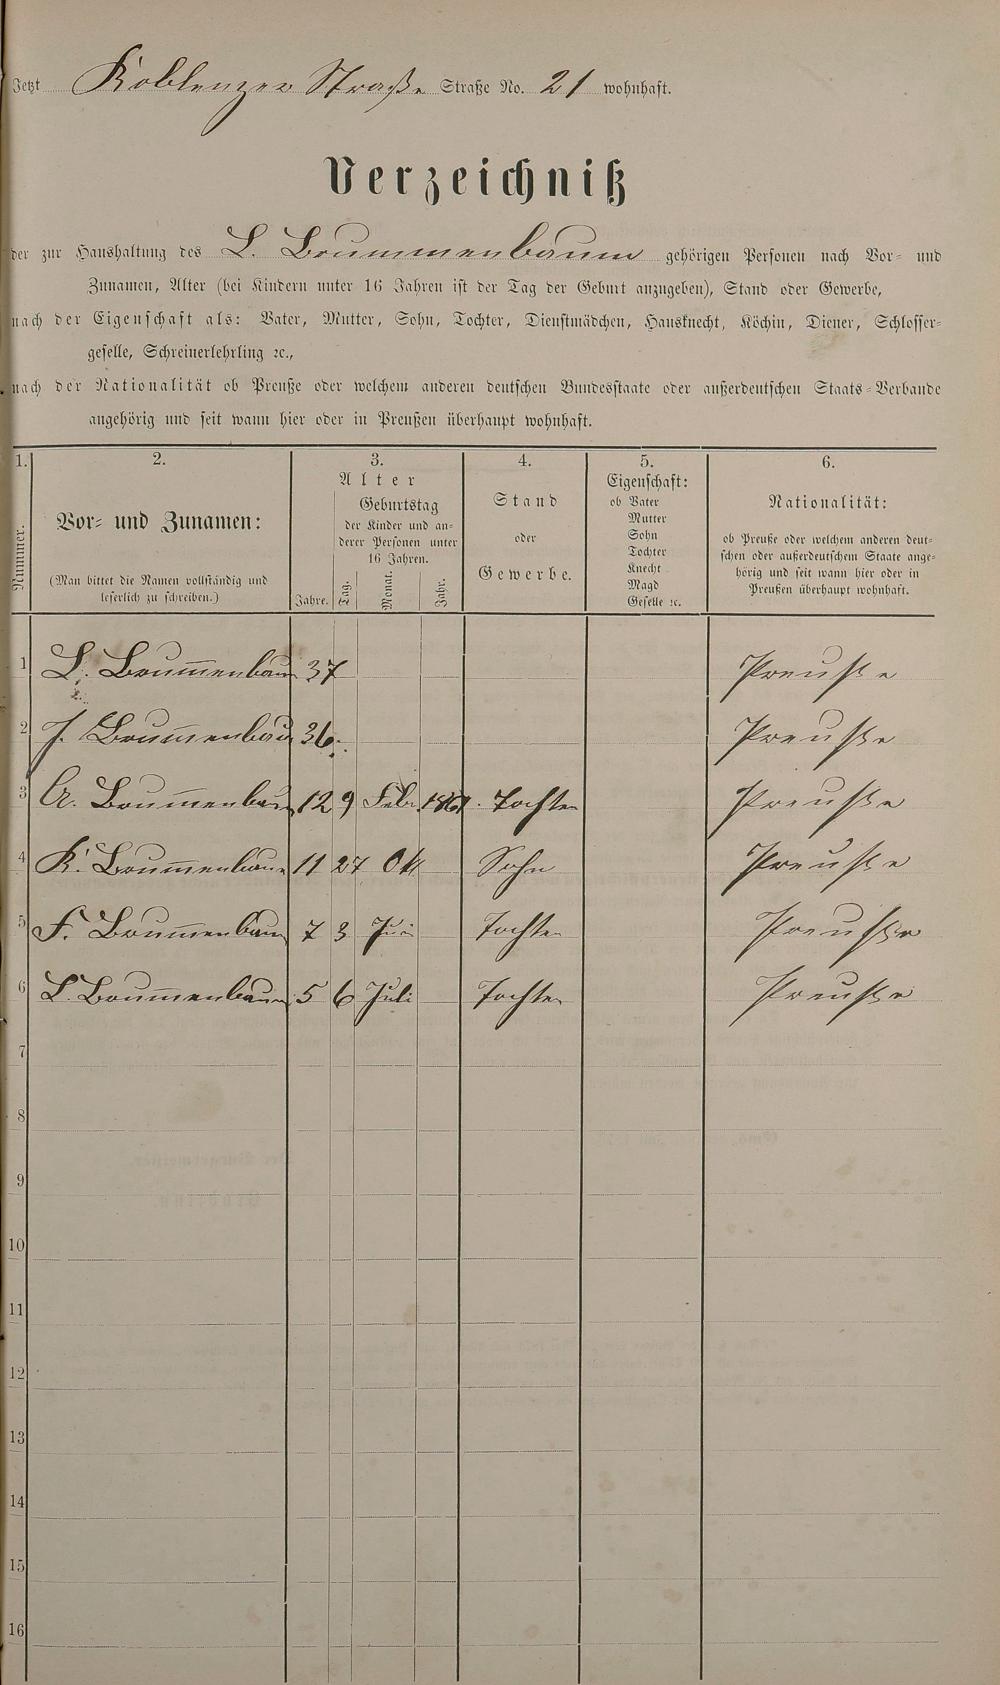 Jetzt Koblenzer Straße Straße No. 21 wohnhaft.
Verzeichniß
der zur Haushaltung des L. Brummenbaum gehörigen Personen nach Vor- und
Zunamen, Alter (bei Kindern unter 16 Jahren ist der Tag der Geburt anzugeben), Stand oder Gewerbe,
nach der Eigenschaft als: Vater, Mutter, Sohn, Tochter, Dienstmädchen, Hausknecht, Köchin, Diener, Schlosser-
geselle, Schreinerlehrling ꝛc.,
nach der Nationalität ob Preuße oder welchem anderen deutschen Bundesstaate oder außerdeutschen Staats-Verbande
angehörig und seit wann hier oder in Preußen überhaupt wohnhaft.
1. 2. 3. 4. 5. 6.
Nummer.
Vor- und Zunamen:
(Man bittet die Namen vollständig und
leserlich zu schreiben.)
Alter
Geburtstag
der Kinder und an-
derer Personen unter
16 Jahren.
Jahre. Tag. Monat. Jahr.
Stand
oder
Gewerbe.
Eigenschaft:
ob Vater
Mutter
Sohn
Tochter
Knecht
Magd
Geselle ꝛc.
Nationalität:
ob Preuße oder welchem anderen deut-
schen oder außerdeutschem Staate ange-
hörig und seit wann hier oder in
Preußen überhaupt wohnhaft.
1 L. Brum̅enbaum 37 Preuße
2 J. Brum̅enbaum 36. Preuße
3 A. Brum̅enbaum 12 9 Febr. 1861. Tochter Preuße
4 K. Brum̅enbaum 11 27 Okt Sohn Preuße
5 F. Brum̅enbaum 7 3 Tochter Preuße
6 L. Brum̅enbaum 5 6 Juli Tochter Preuße
7
8
9
10
11
12
13
14
15
16